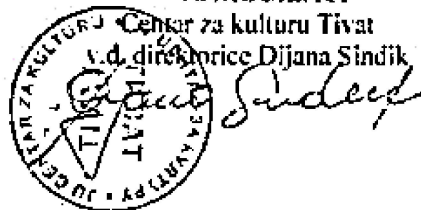 Centar za kulturu Tivat
v.d. direktorice Dijana Sindik
JU CENTAR ZA KULTURU
TIVAT